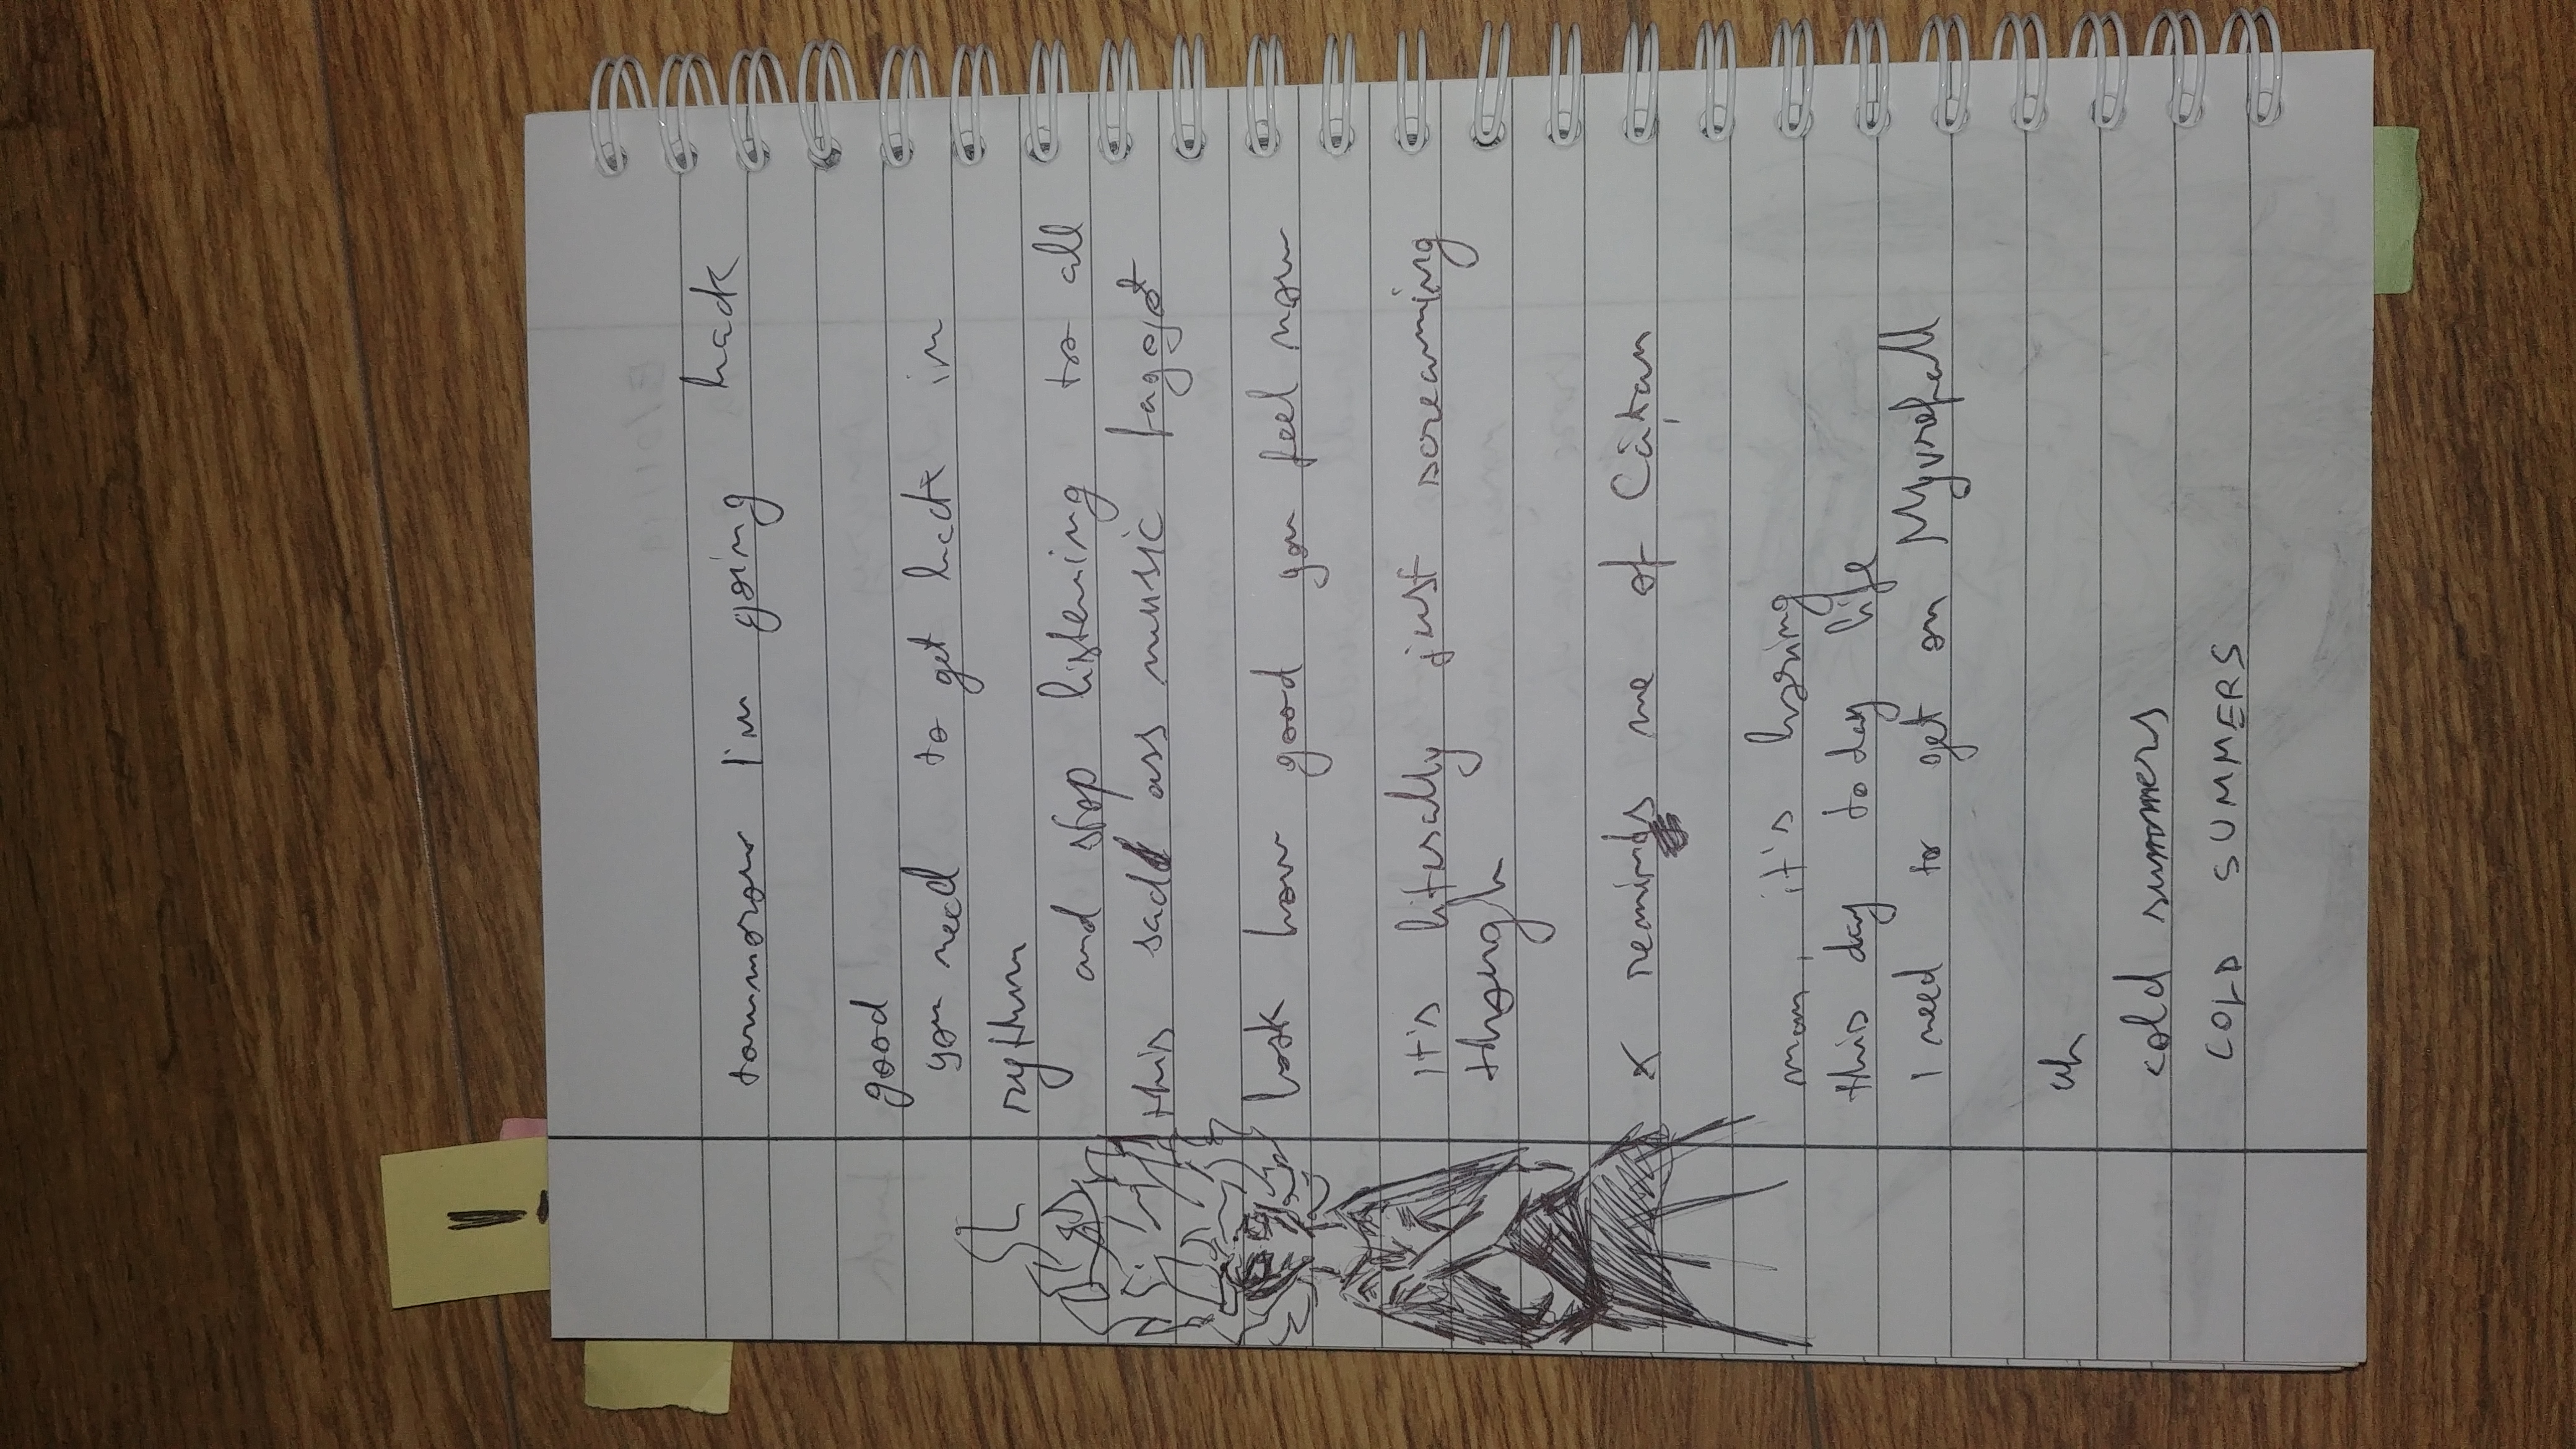 !
tommorow I'm going back
good
you need to get back in
rythm
and stop listening to all
this sad ass music faggot
look how good you feel now
it's literally just screaming
though
x reminds me of Cațan
man, it's boring
this day today life
I need to get on
uh
cold summers
COLD SUMMERS